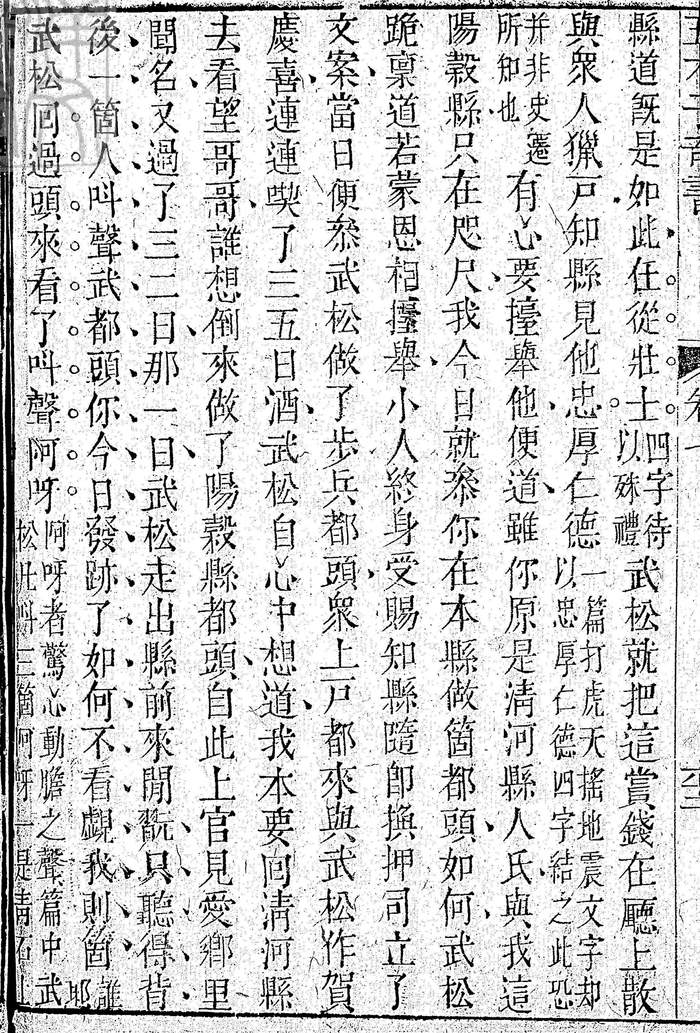 縣道既是如此任從壯士四字待以殊禮武松就把這賞錢在廳上散
與眾人獵戸知縣見他忠厚仁德一篇打虎天搖地震文字却以忠厚仁德四字結之此恐
并非史遷所知也有心要擡舉他便道雖你原是清河縣人氏與我這
陽穀縣只在咫尺我今日就叅你在本縣做箇都頭如何武松
跪稟道若蒙恩相擡舉小人終身受賜知縣隨卽換押司立了
文案當日便叅武松做了步兵都頭衆上戸都來與武松作賀
慶喜連連喫了三五日酒武松自心中想道我本要回淸河縣
去看望哥哥誰想倒來做了陽穀縣都頭自此上官見愛鄉里
聞名又過了三二日那一日武松走出縣前來閒翫只聽得背
後一箇人叫聲武都頭你今日發跡了如何不看覷我則箇誰耶
武松回過頭來看了叫聲阿呀阿呀者驚心動膽之聲篇中武松此叫三箇阿呀一是靑石上